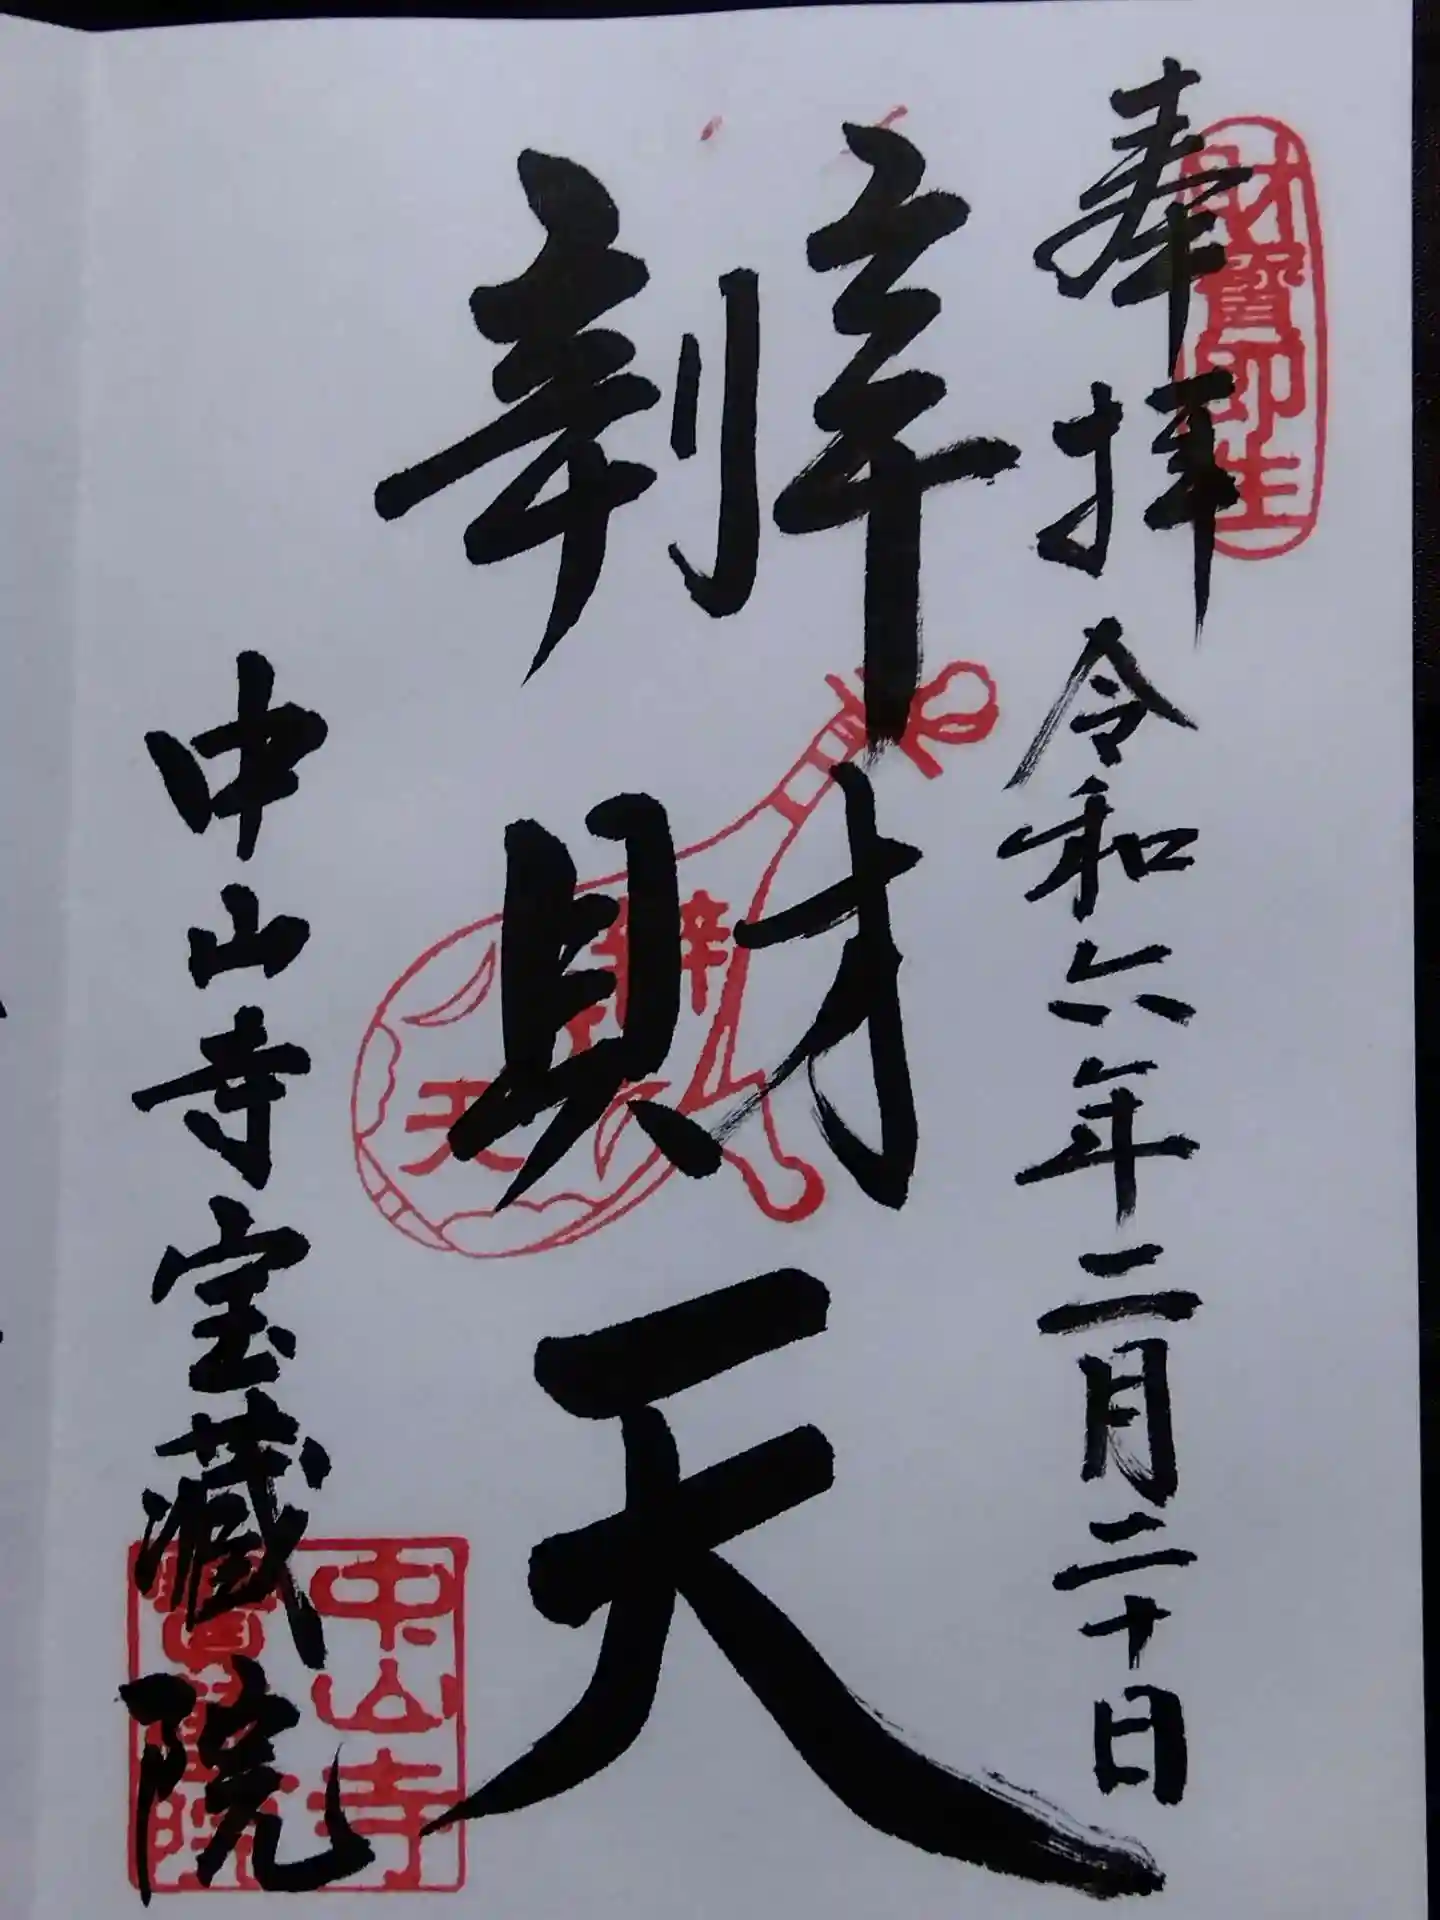 奉拝 令和六年二月二十日
財寶即生
辨財天
辨
天
中山寺宝蔵院
中山寺
寶藏院